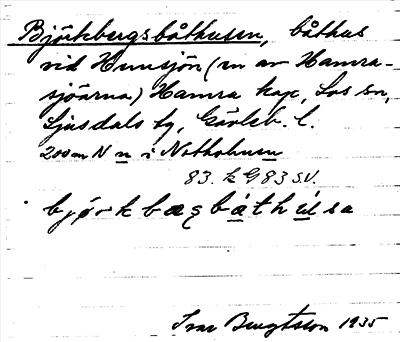 Björkbergsbåthusen, båthus
vid Hunsjön (en av Hamra-
sjöarna) Hamra kap, Los sn,
Ljusdals tg, Gävleb. l.
200 m N n i Notholmen
83. k G 83 S.V.
björkbæȩbåthúlsa
Ivar Bengtsson 1935